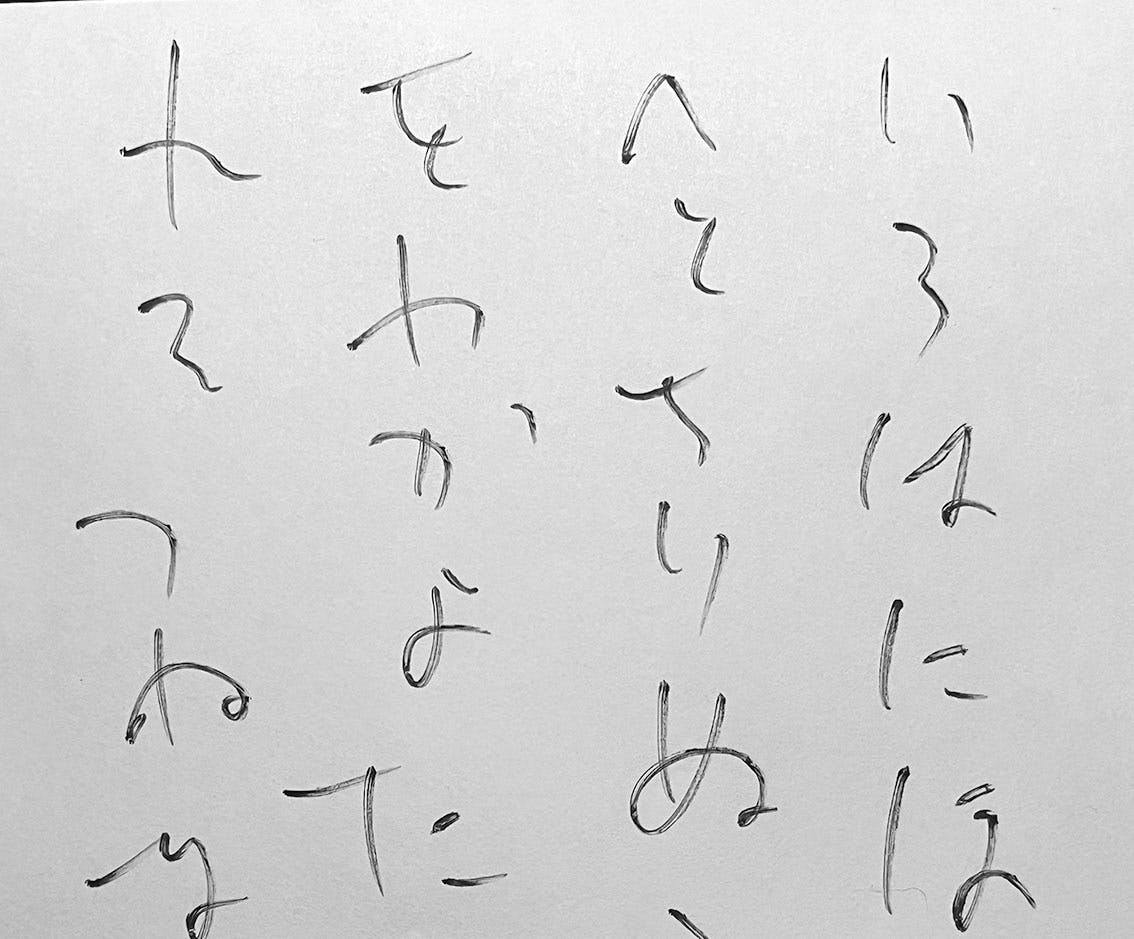 いろはにほ
へとちりぬ
をわかよた
れそつねな